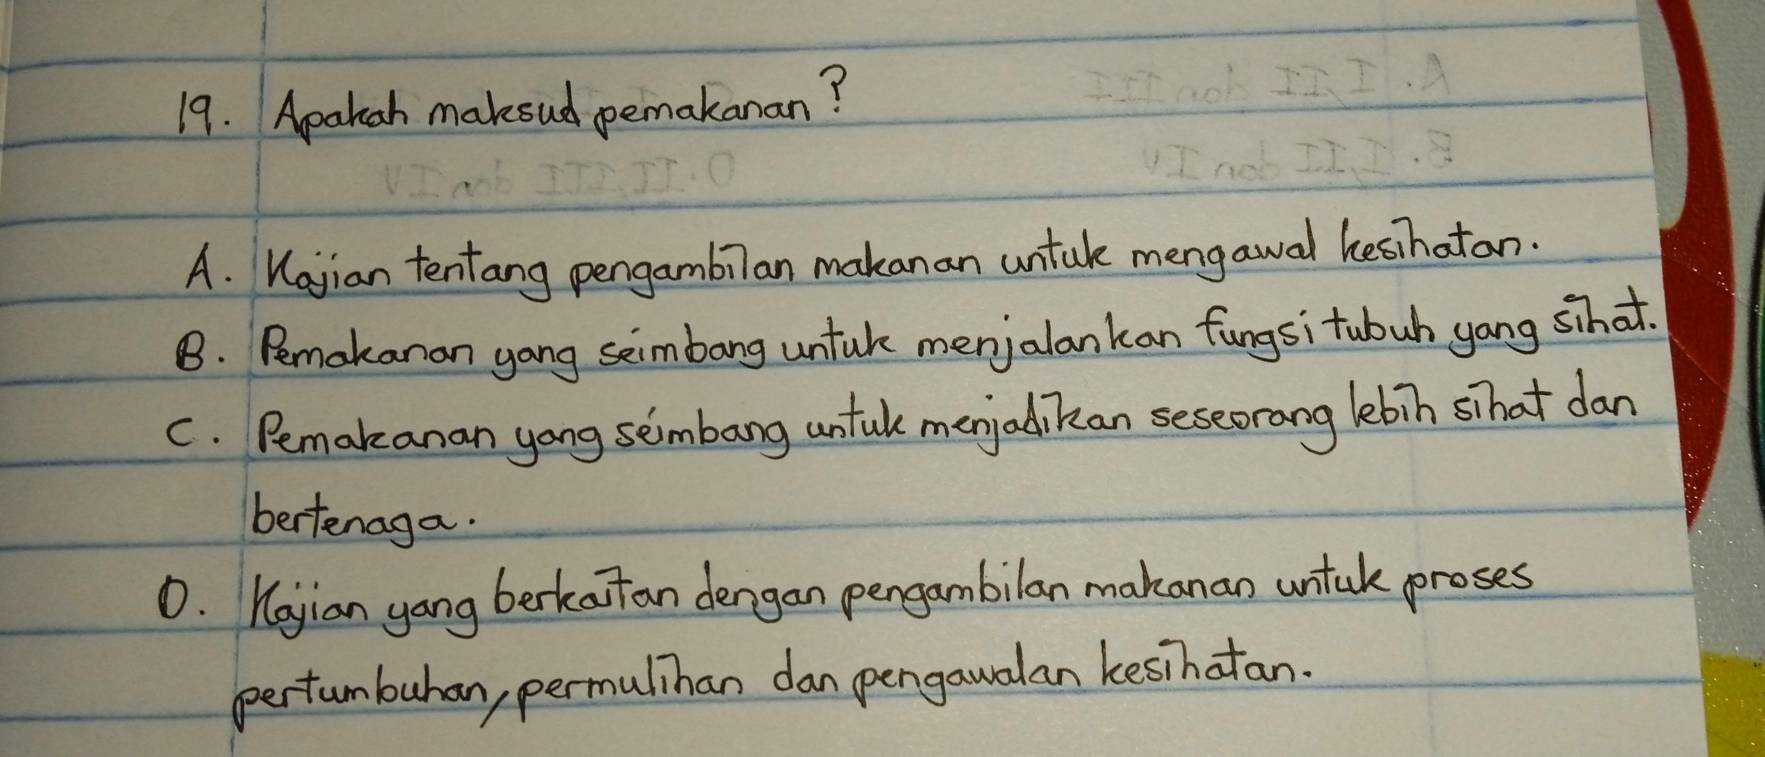 19. Apakah maksud pemakanan?
A. I, II dan III
B. I, II dan IV
D. II, III dan IV
A. Kajian tentang pengambilan makanan untuk mengawal kesihatan.
B. Pemakanan yang seimbang untuk menjalankan fungsi tubuh yang sihat.
C. Pemakanan yang seimbang untuk menjadikan seseorang lebih sihat dan
bertenaga.
D. Kajian yang berkaitan dengan pengambilan makanan untuk proses
pertumbuhan, permulihan dan pengawalan kesihatan.